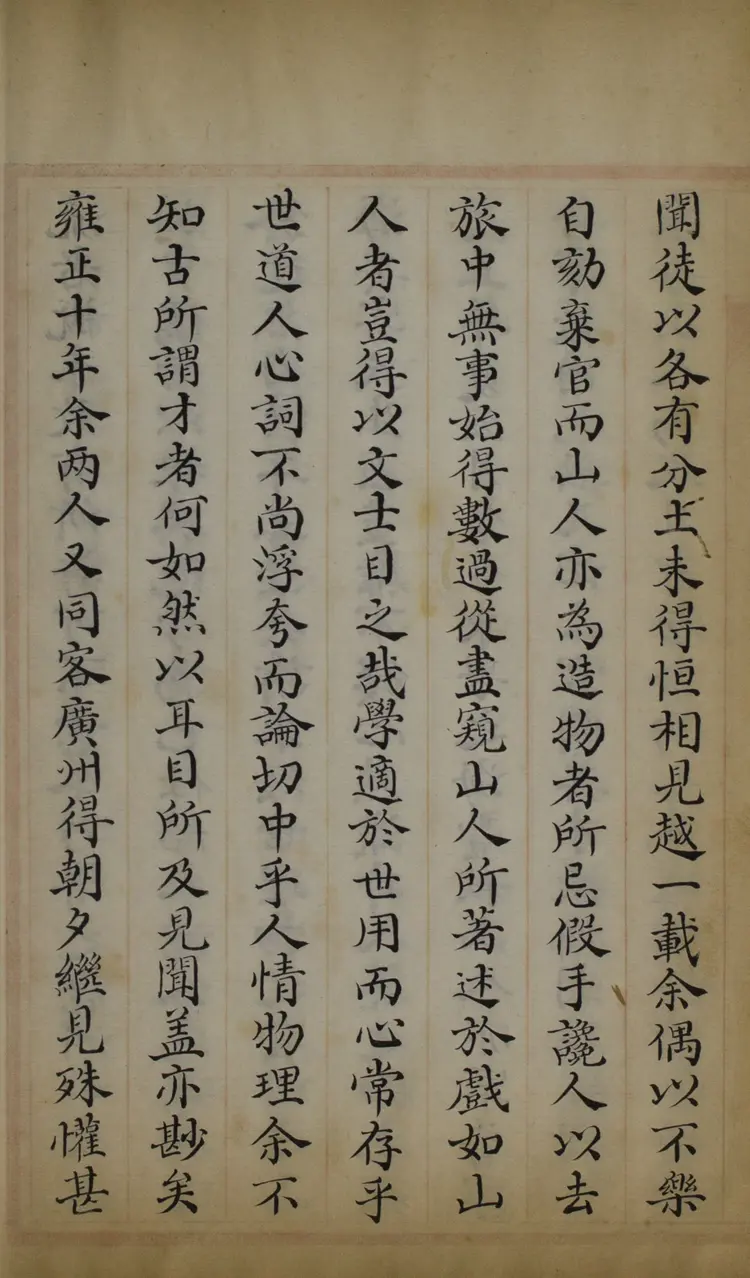 聞徒以各有分土未得恒相見越一載余偶以不樂
自劾棄官而山人亦為造物者所忌假手讒人以去
旅中無事始得數過從盡窺山人所著述於戲如山
人者豈得以文士目之哉學適於世用而心常存乎
世道人心詞不尚浮夸而論切中乎人情物理余不
知古所謂才者何如然以耳目所及見聞盖亦尠矣
雍正十年余两人又同客廣州得朝夕繼見殊懽甚